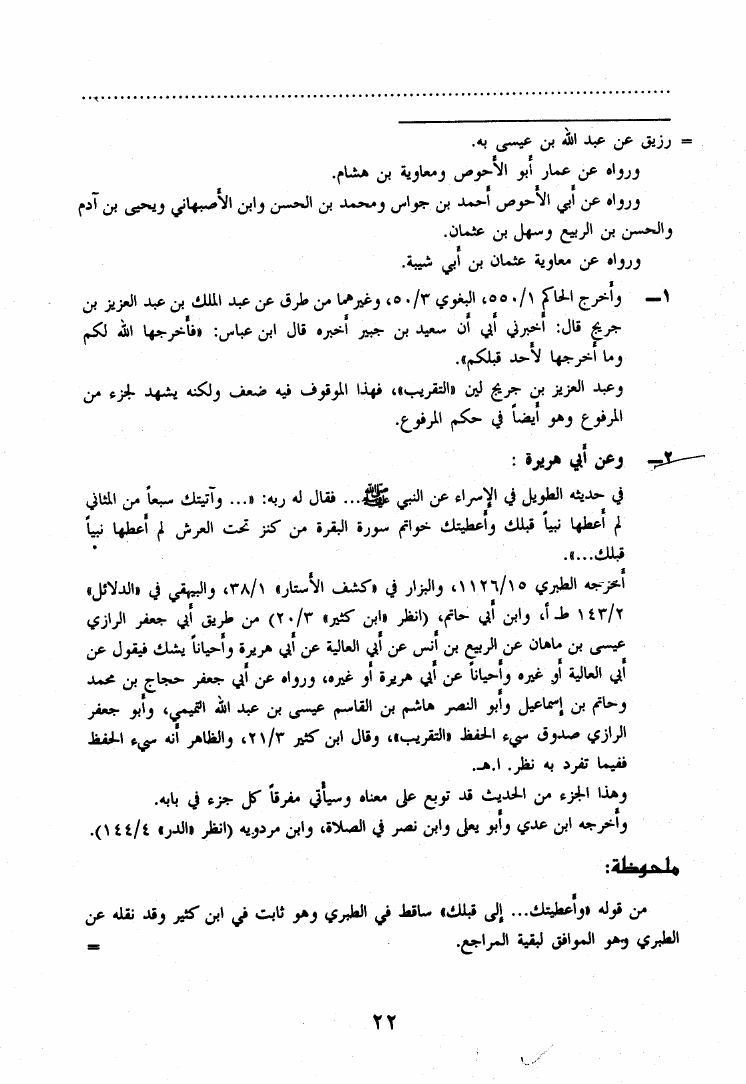 = رزيق عن عبد الله بن عيسى به.
ورواه عن عمار أبو الأحوص ومعاوية بن هشام.
ورواه عن أبي الأحوص أحمد بن جواس ومحمد بن الحسن وابن الأصبهاني ويحيى بن آدم
والحسن بن الربيع وسهل بن عثمان.
ورواه عن معاوية عثمان بن أبي شيبة.
١ـ وأخرج الحاكم ٥٥٠/١، البغوي ٥٠/٣، وغيرهما من طرق عن عبد الملك بن عبد العزيز بن
جريج قال: أخبرني أبي أن سعيد بن جبير أخبره قال ابن عباس: «فأخرجها الله لكم
وما أخرجها لأحد قبلكم».
وعبد العزيز بن جريج لين «التقريب»، فهذا الموقوف فيه ضعف ولكنه يشهد لجزء من
المرفوع وهو أيضاً في حكم المرفوع.
٢ـ وعن أبي هريرة :
في حديثه الطويل في الإسراء عن النبي ﷺ... فقال له ربه: «... وآتيتك سبعاً من المثاني
لم أعطها نبياً قبلك وأعطيتك خواتم سورة البقرة من كنز تحت العرش لم أعطها نبياً
قبلك...».
أخرجه الطبري ١١٢٦/١٥، والبزار في «كشف الأستار» ٣٨/١، والبيهقي في «الدلائل»
١٤٣/٢ ط أ، وابن أبي حاتم، (انظر «ابن كثير» ٢٠/٣) من طريق أبي جعفر الرازي
عيسى بن ماهان عن الربيع بن أنس عن أبي العالية عن أبي هريرة وأحياناً يشك فيقول عن
أبي العالية أو غيره وأحياناً عن أبي هريرة أو غيره، ورواه عن أبي جعفر حجاج بن محمد
وحاتم بن إسماعيل وأبو النصر هاشم بن القاسم عيسى بن عبد الله التميمي، وأبو جعفر
الرازي صدوق سيء الحفظ «التقريب»، وقال ابن كثير ٢١/٣، والظاهر أنه سيء الحفظ
ففيما تفرد به نظر. ا.هـ.
وهذا الجزء من الحديث قد توبع على معناه وسيأتي مفرقاً كل جزء في بابه.
وأخرجه ابن عدي وأبو يعلى وابن نصر في الصلاة، وابن مردويه (انظر «الدر» ١٤٤/٤).
ملحوظة:
من قوله «وأعطيتك... إلى قبلك» ساقط في الطبري وهو ثابت في ابن كثير وقد نقله عن
الطبري وهو الموافق لبقية المراجع. =
٢٢